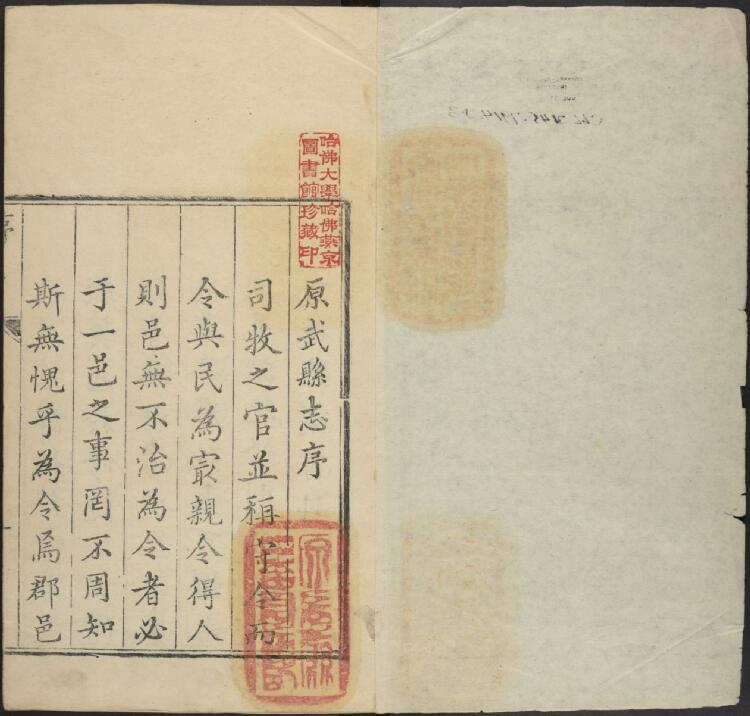 哈佛大學哈佛燕京
圖書館珍藏印
原武縣志序
司牧之官並稱守令而
令與民為寂親令得人
則邑無不治為令者必
于一邑之事罔不周知
斯無愧乎為令焉郡邑